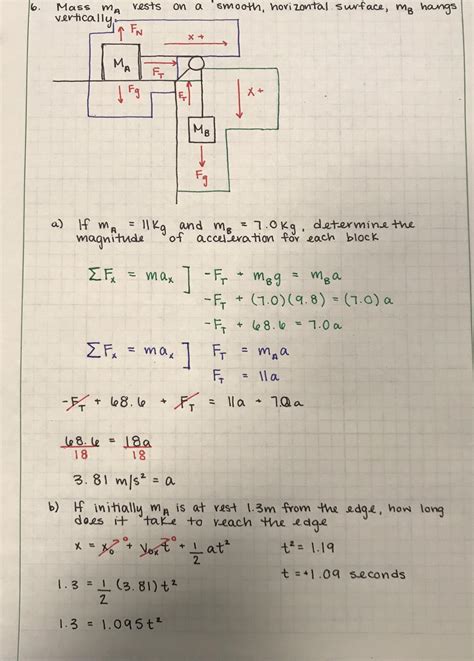 6. Mass mA rests on a smooth, horizontal surface, mB hangs
vertically.
FN
x+
MA
FT
Fg
FT
x+
MB
Fg
a) If mA = 11kg and mB = 7.0kg, determine the
magnitude of acceleration for each block
ΣFx = max ] -FT + mBg = mBa
-FT + (7.0)(9.8) = (7.0)a
-FT + 68.6 = 7.0a
ΣFx = max ] FT = mAa
FT = 11a
-FT + 68.6 + FT = 11a + 7.0a
68.6 = 18a
18 18
3.81 m/s² = a
b) If initially mA is at rest 1.3m from the edge, how long
does it take to reach the edge
x = x₀ + v₀ₓt + 1/2 at² t² = 1.19
1.3 = 1/2 (3.81)t² t = +1.09 seconds
1.3 = 1.095t²